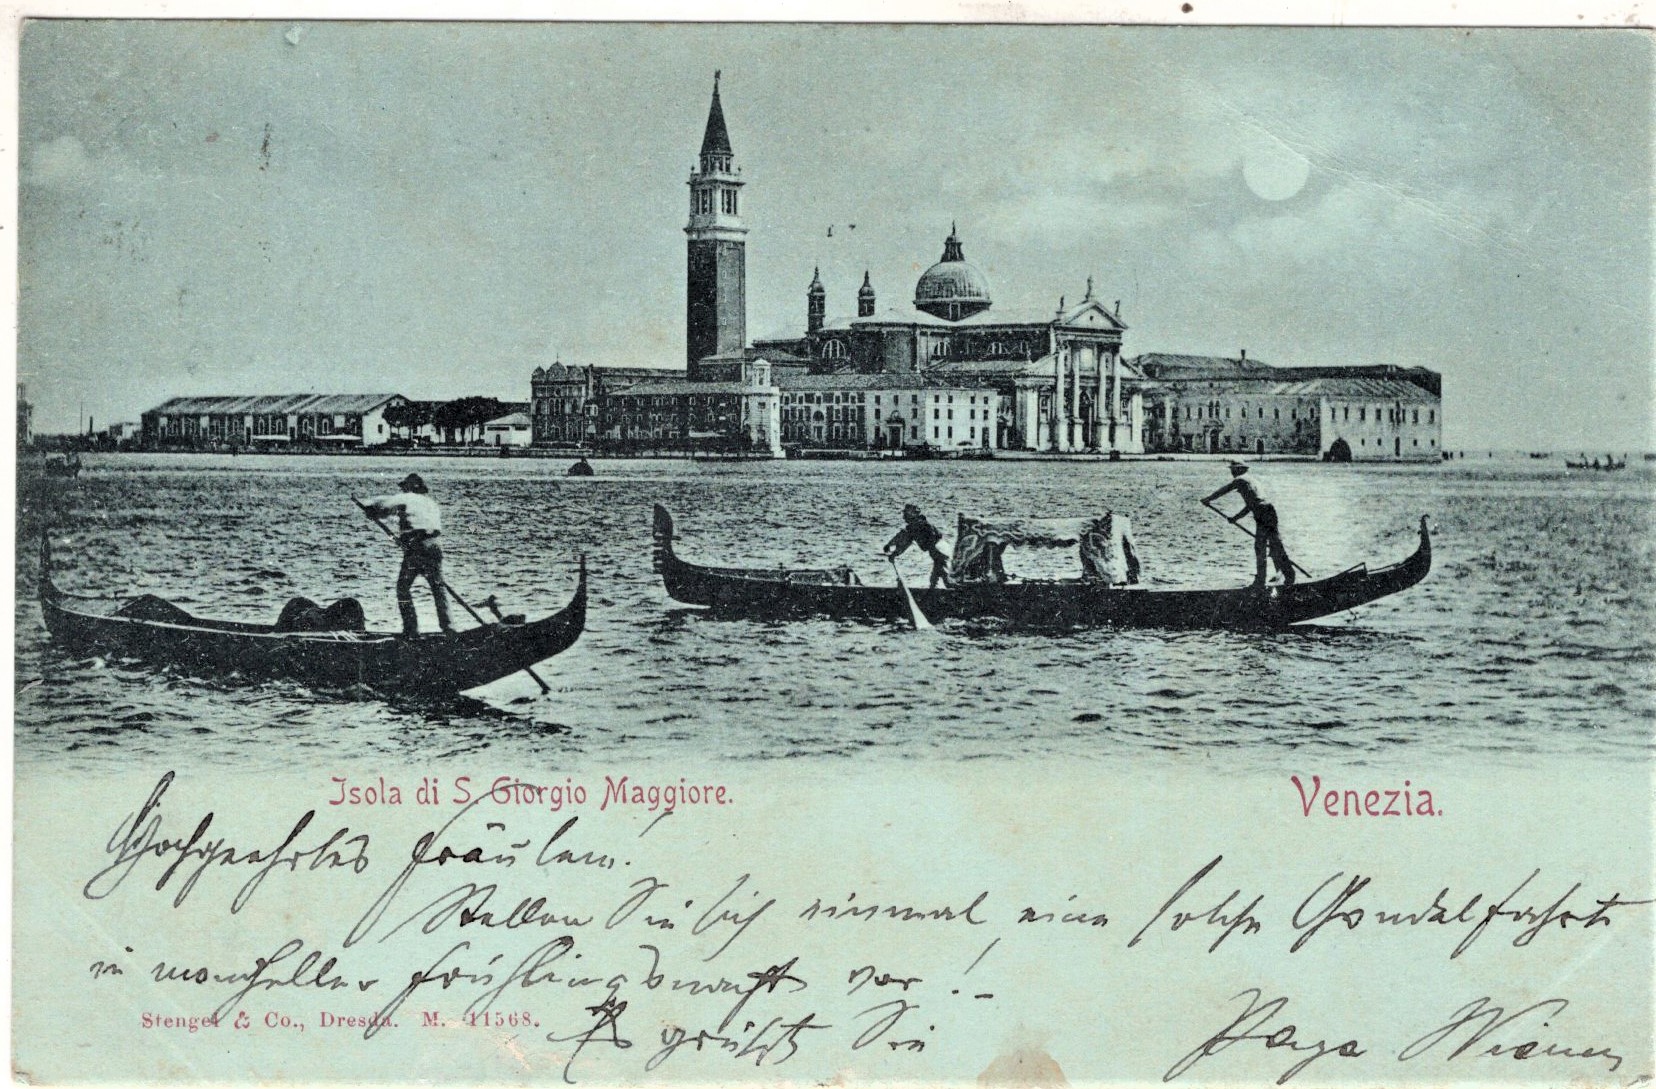 Isola di S. Giorgio Maggiore.
Venezia.
Hochgeehrtes Fräulein!
Stellen Sie sich einmal eine solche Gondelfahrt
in mondheller Frühlingsnacht vor! –
Stengel & Co., Dresda. M. 11568.
Es grüßt Sie